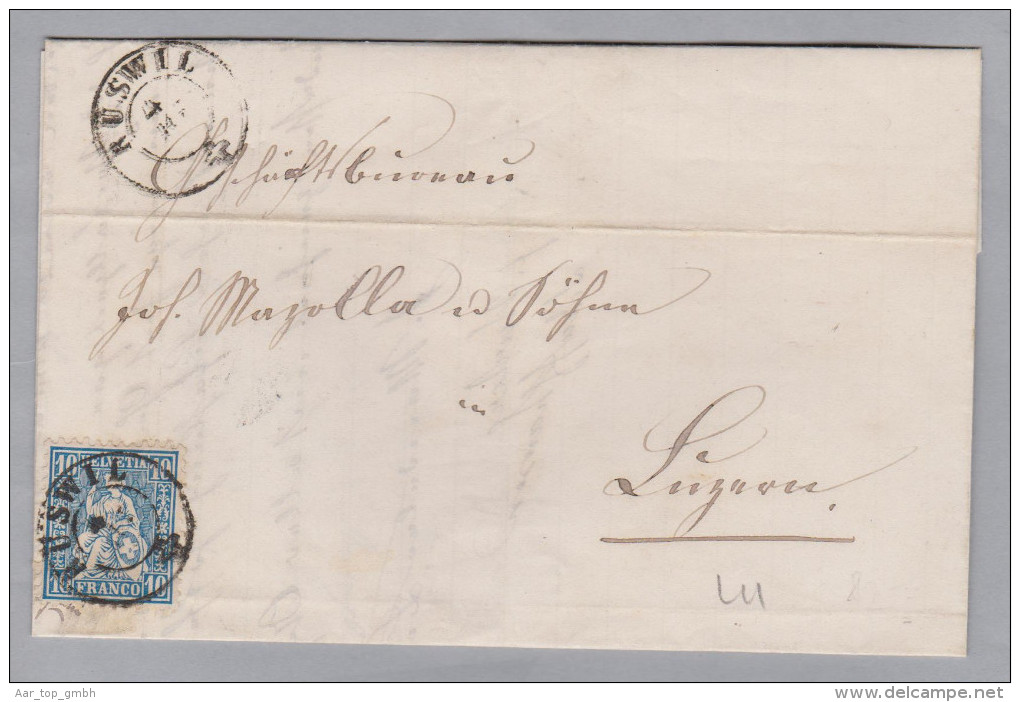 RUSWIL
Geschäftsbureau
Jos. Mazolla & Söhne
in
Luzern
10 HELVETIA 10
RUSWIL
10 FRANCO 10
Aar_top_gmbh
www.delcampe.net